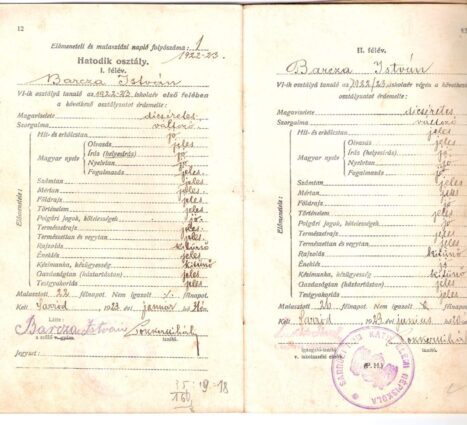 12
Előmeneteli és mulasztási napló folyószáma: 1
1922-23.
Hatodik osztály.
I. félév.
Barcza István
VI-ik osztályú tanuló az 1922-23 iskolaév első felében
a következő osztályzatot érdemelte:
Magaviselete dicséretes
Szorgalma változó
Előmenetele:
Hit- és erkölcstan jeles
Magyar nyelv
Olvasás jó
Írás (helyesírás) jó
Nyelvtan jó
Fogalmazás jeles
Számtan jeles
Mértan jeles
Földrajz jeles
Történelem jeles
Polgári jogok, kötelességek jó
Természetrajz jeles
Természettan és vegytan jeles
Rajzolás kitűnő
Éneklés jeles
Kézimunka, kézügyesség kitűnő
Gazdaságtan (háztartástan) jeles
Testgyakorlás jeles
Mulasztott 22 félnapot. Nem igazolt félnapot.
Kelt Sarród 1923 évi január hó
Látta:
Barcza István
a szülő v. gyám.
tanító.
Jegyzet:
35:19-18
160
II. félév.
Barcza István
VI-ik osztályú tanuló az 1922/23 iskolaév végén a következő
osztályzatot érdemelte:
Magaviselete dicséretes
Szorgalma változó
Előmenetele:
Hit- és erkölcstan jeles
Magyar nyelv
Olvasás jeles
Írás (helyesírás) jó
Nyelvtan jó
Fogalmazás jó
Számtan jeles
Mértan jeles
Földrajz jó
Történelem jeles
Polgári jogok, kötelességek jó
Természetrajz jeles
Természettan és vegytan jeles
Rajzolás kitűnő
Éneklés jeles
Kézimunka, kézügyesség kitűnő
Gazdaságtan (háztartástan) jeles
Testgyakorlás jeles
Mulasztott 26 félnapot. Nem igazolt félnapot.
Kelt Sarród 1923 évi junius
igazgató-tanító
v. iskolaszéki elnök.
tanító.